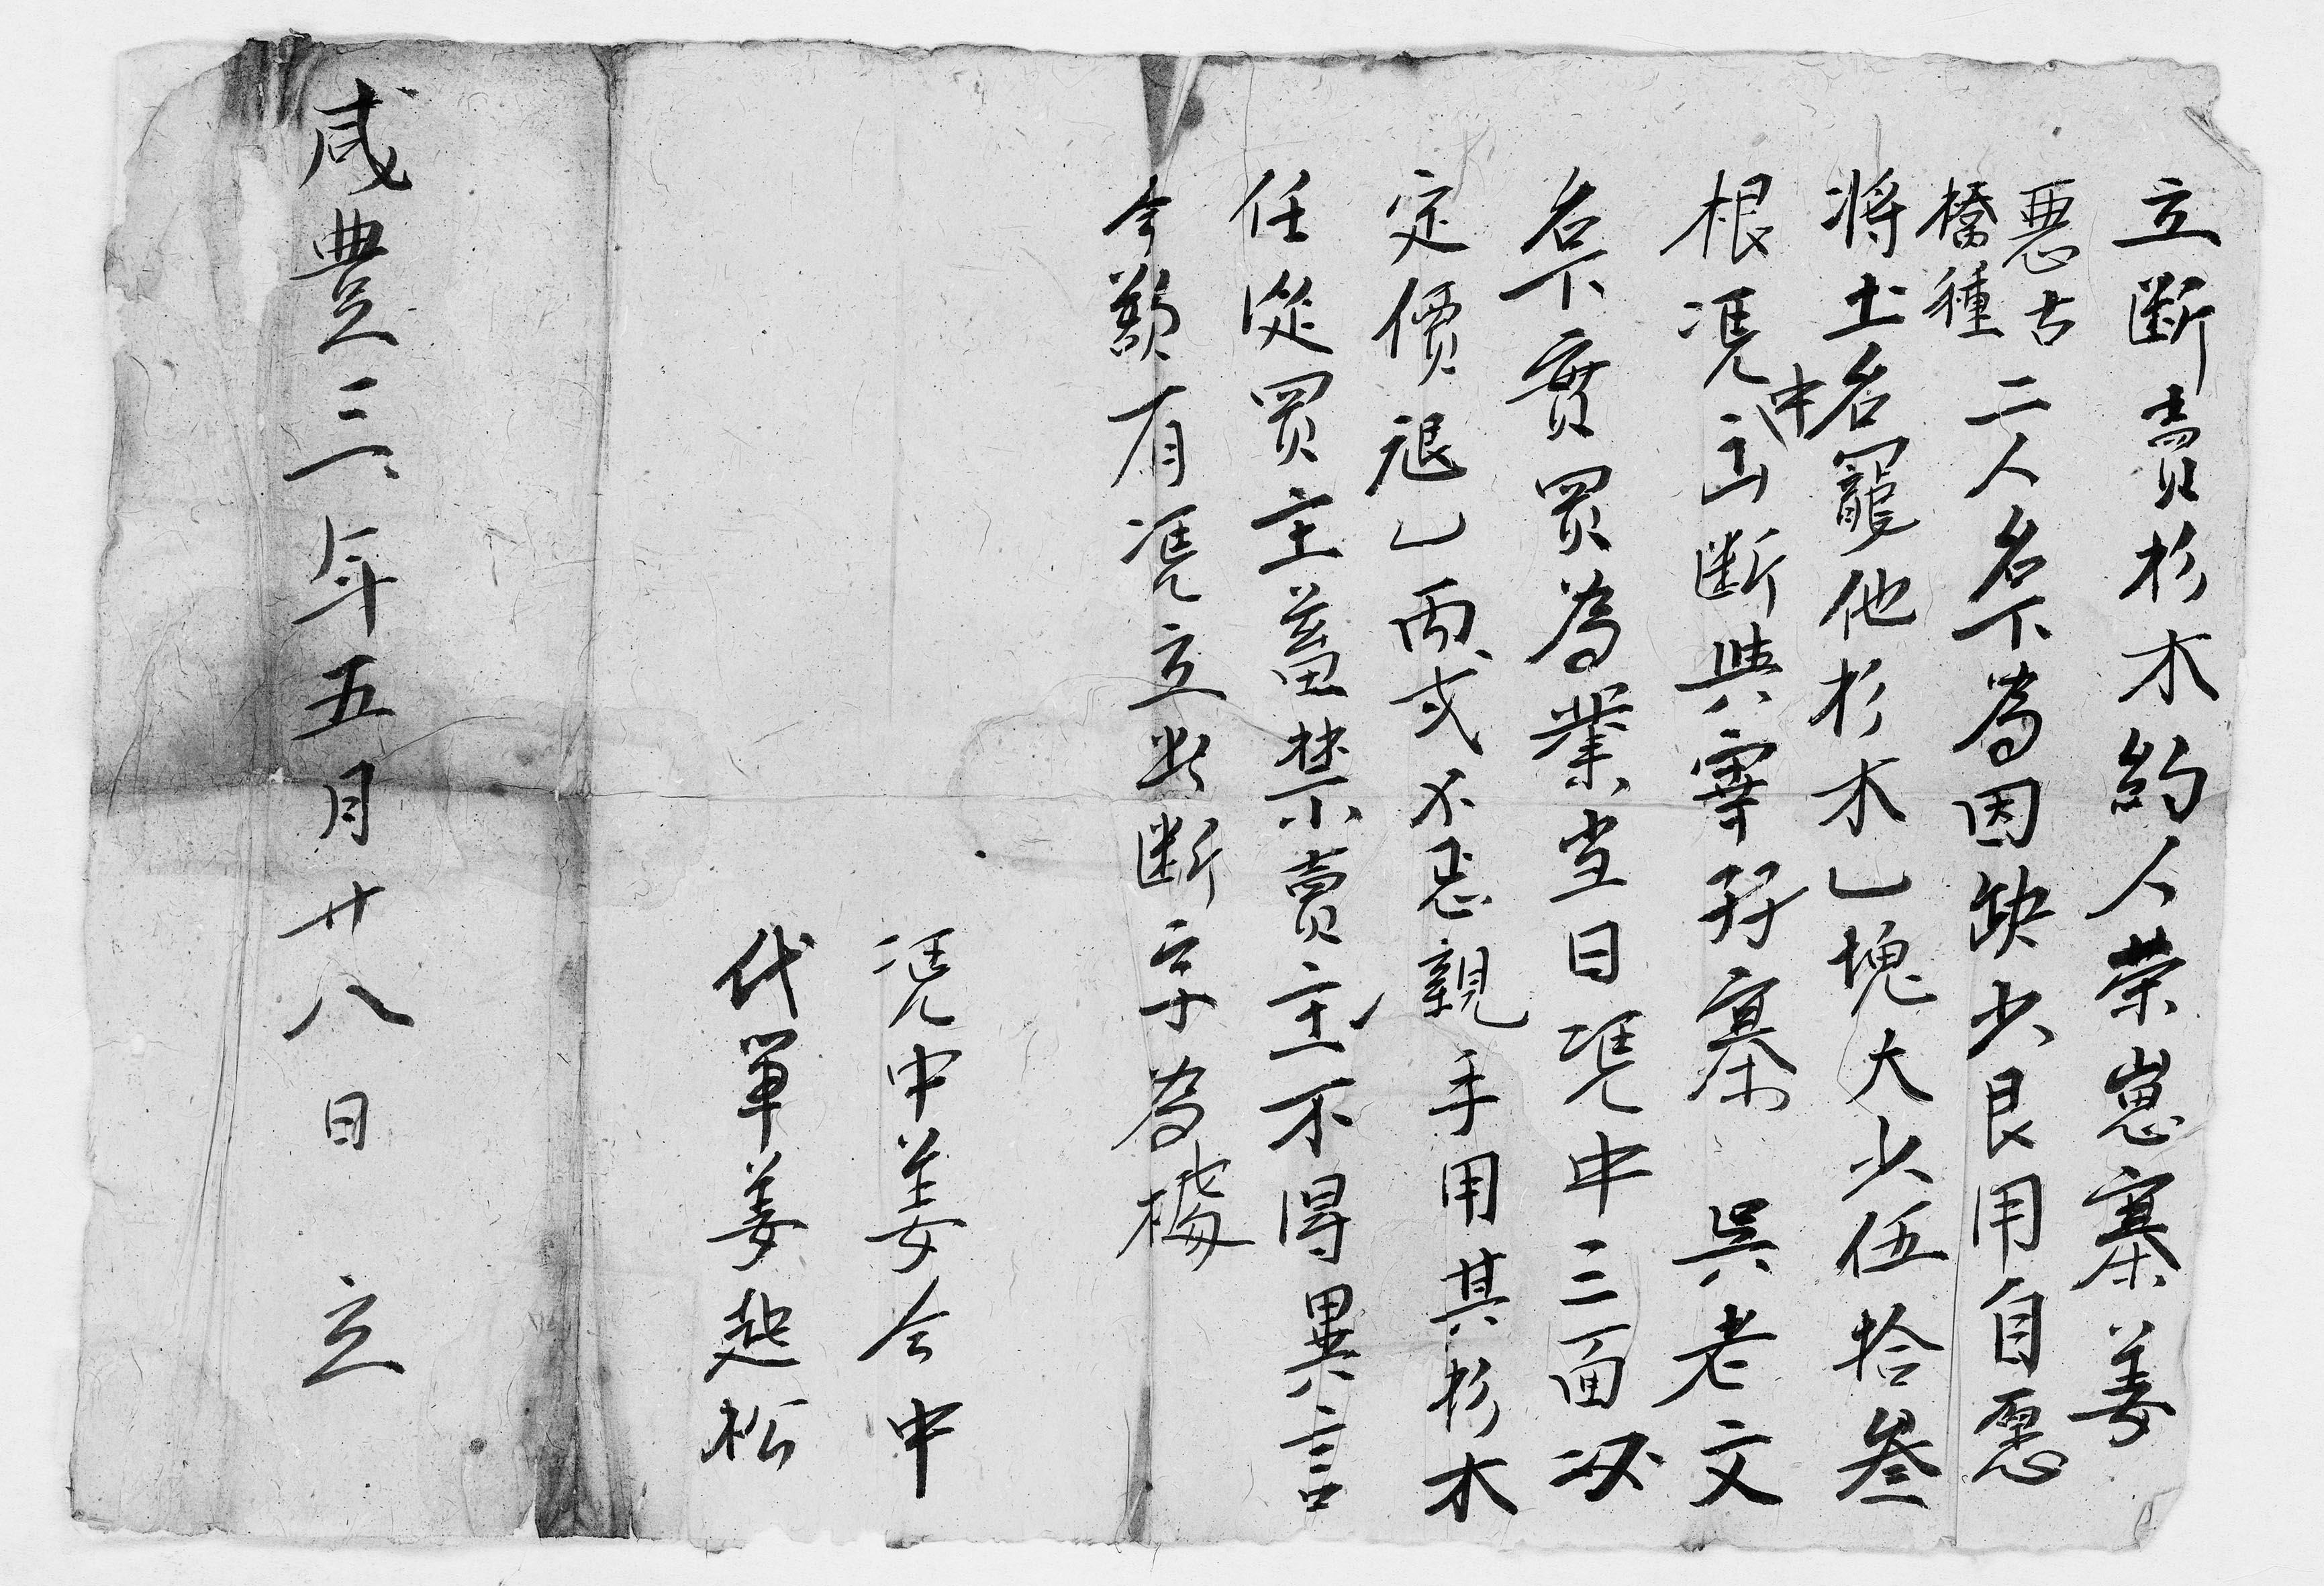 立断賣杉木約人荣崽寨姜
惡古
橋種二人名下為因缺少艮用自愿
將土名竉他杉木乚塊大少伍拾叁
根凴中出断與寧孖寨 吳老文
名下實買為業当日凴中三面议
定價艮乚両弍不忌親手用其杉木
任從買主蓄禁賣主不得異言
今欲有凴立此断字為㨿
凴中姜今中
代笔姜超松
咸豐三年五月廿八日 立